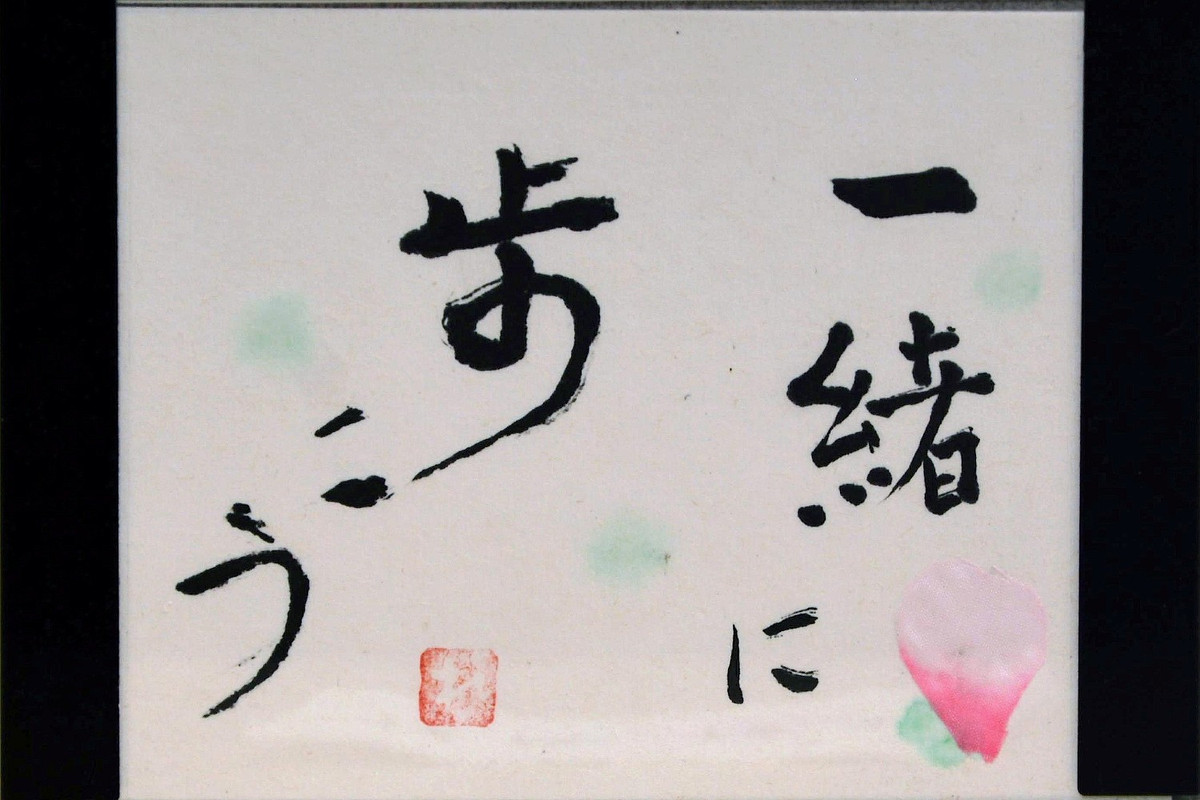 一緒に
歩こう